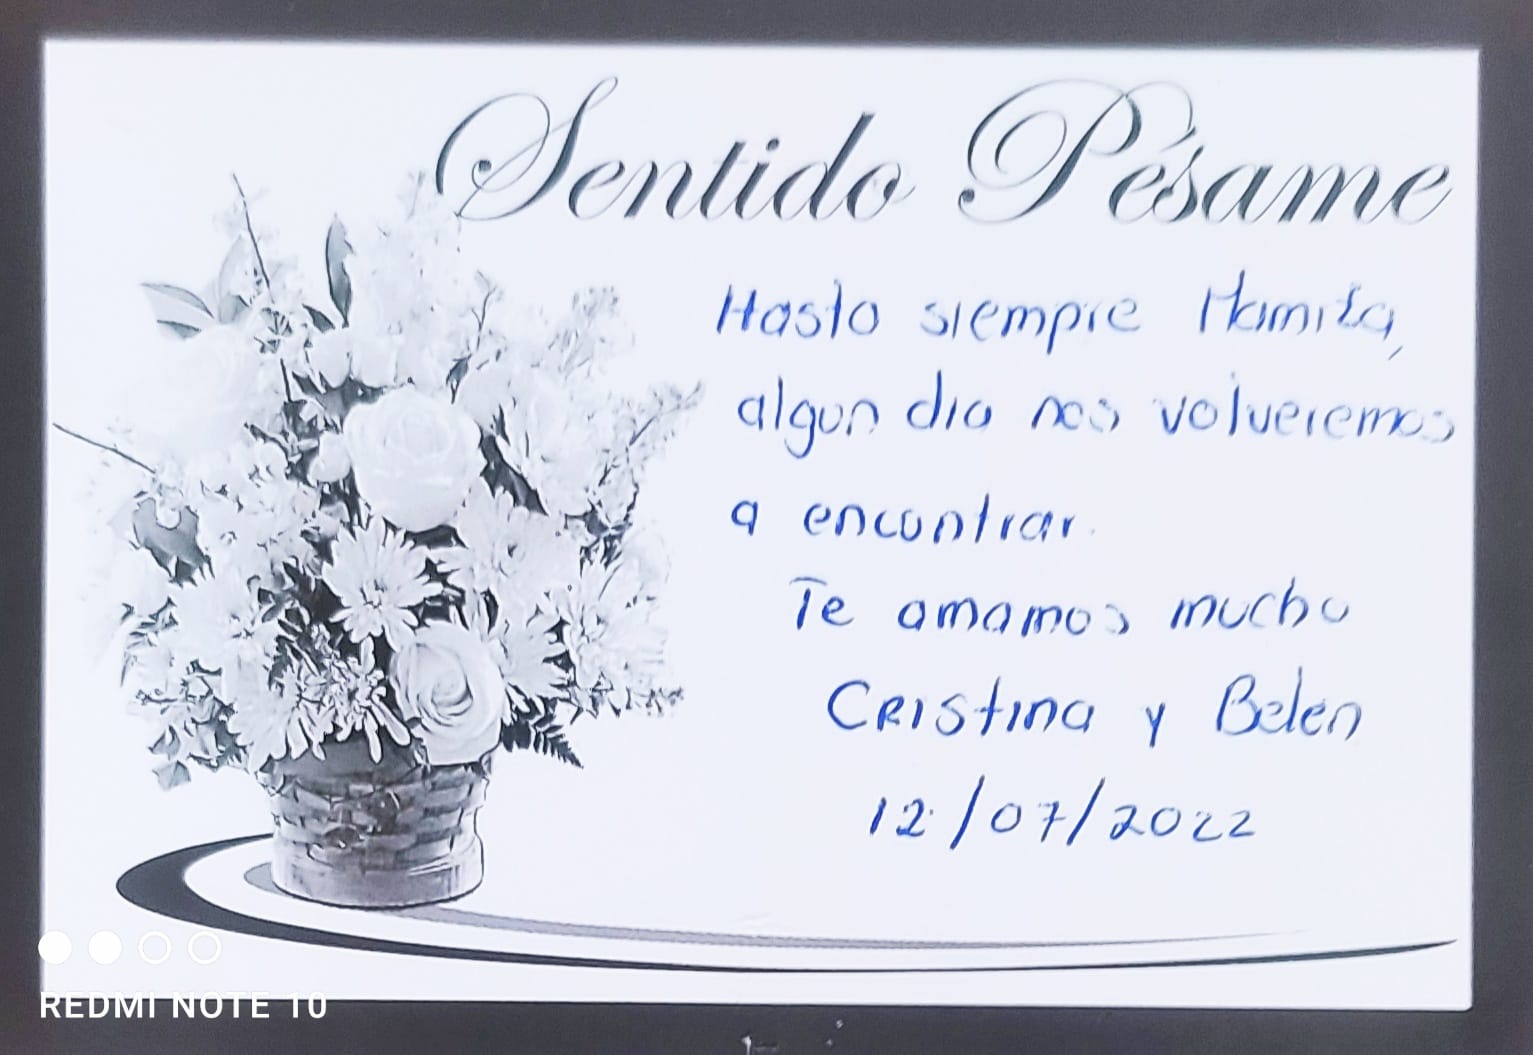 Sentido Pésame
Hasta siempre Mamita,
algun dia nos volveremos
a encontrar.
Te amamos mucho
Cristina y Belen
12/07/2022
REDMI NOTE 10